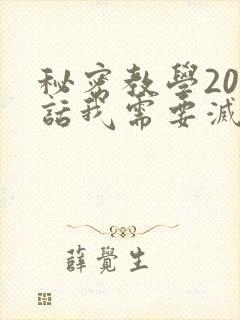 秘密教學20
話我需要滅
薛覺生